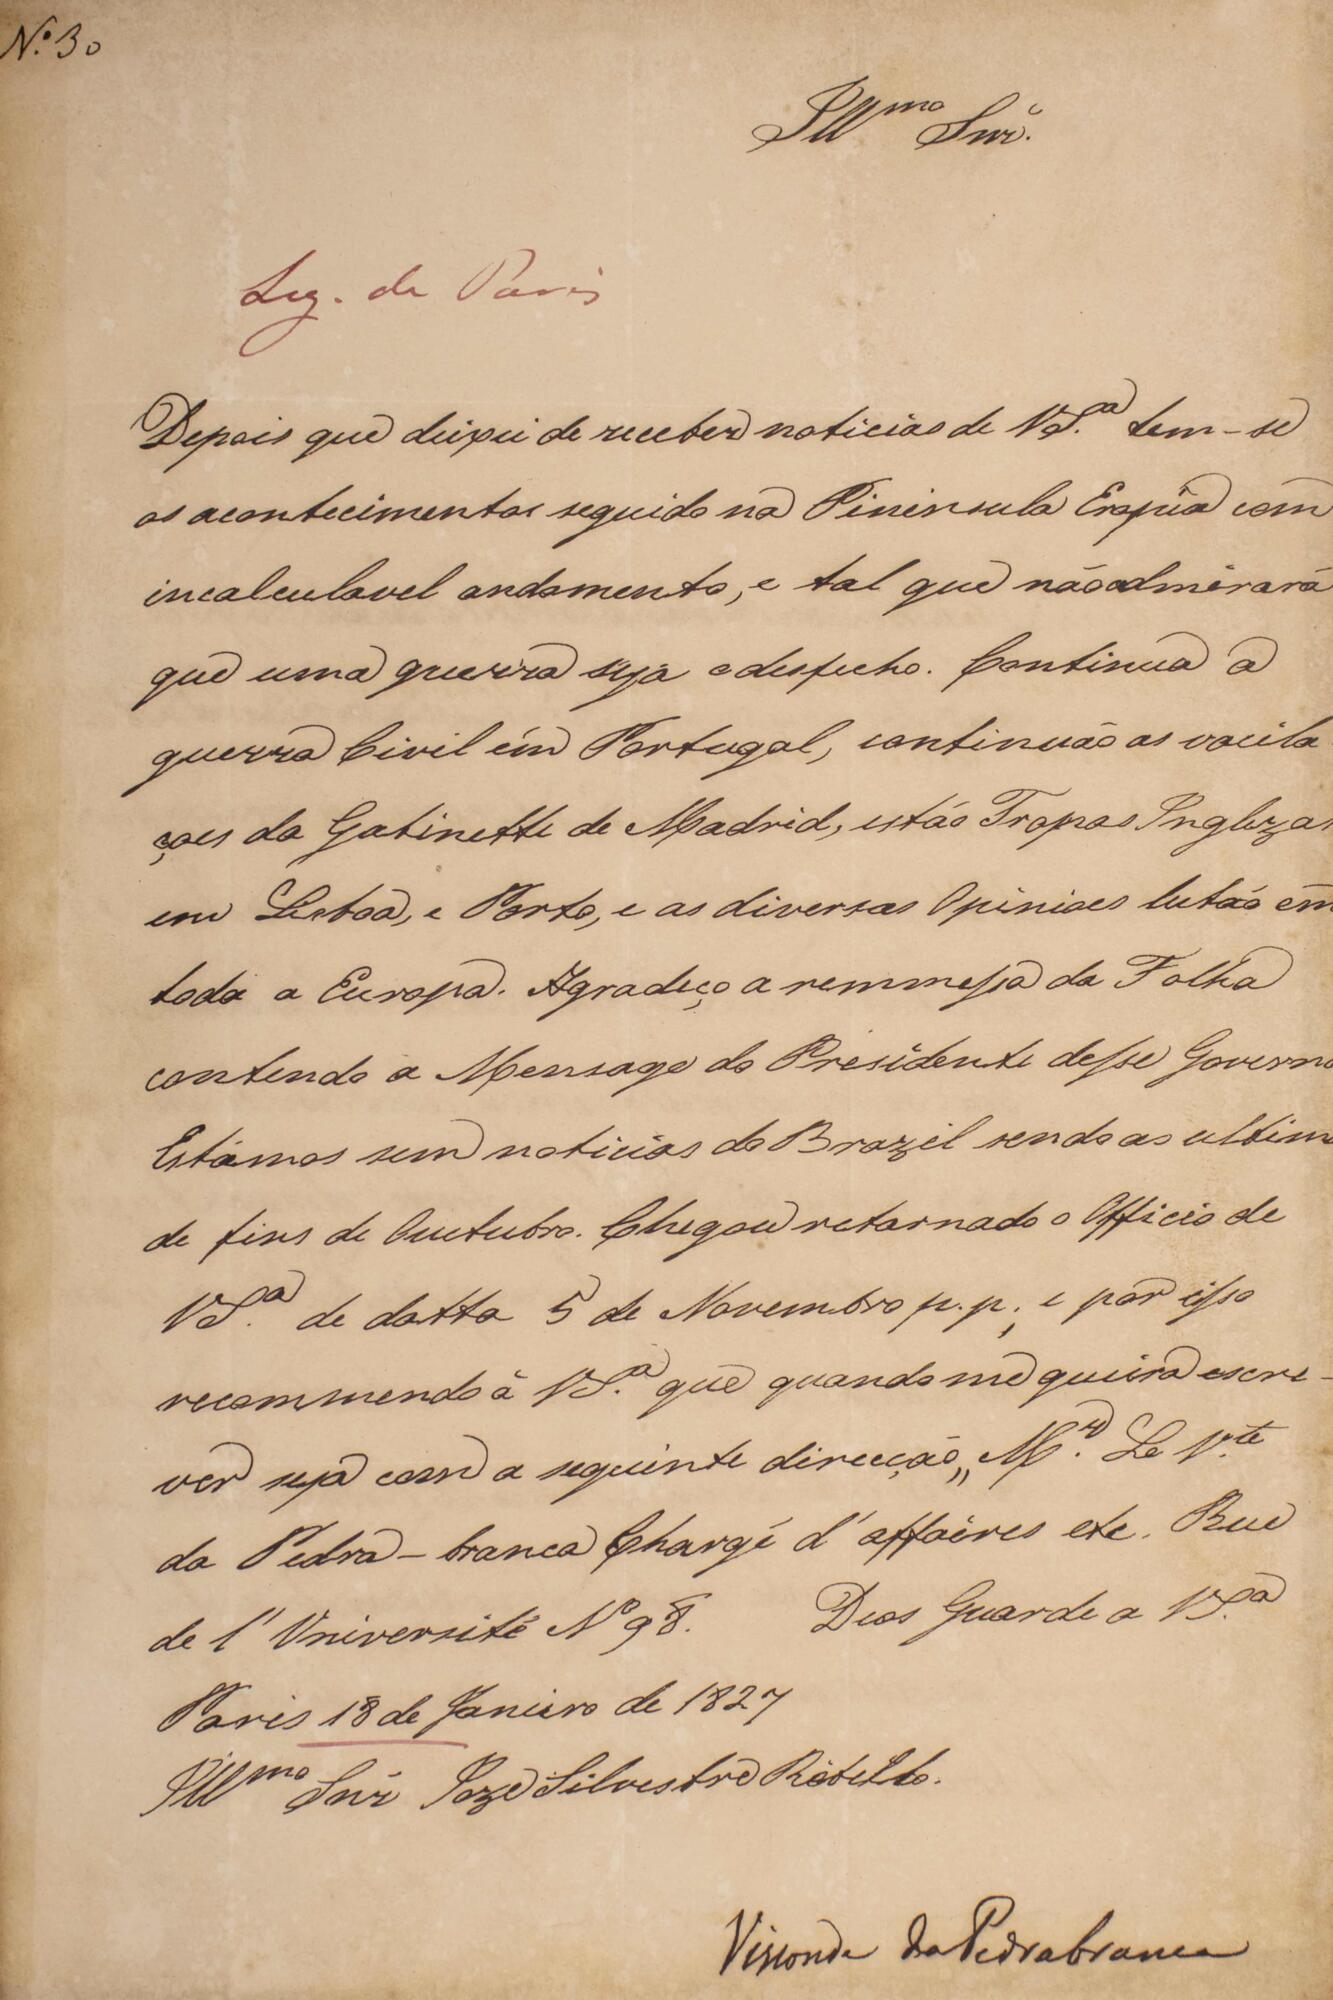 N.º 3o
Ill.mo Snr.
Leg. de Paris
Depois que deixei de receber noticias de VS.ª tem-se
os acontecimentos seguido na Pininsula com
incalculavel andamento, e tal que não admirará
que uma guerra seja o desfecho. Continua a
guerra Civil em Portugal, continuão as vacila
ções do Gabinette de Madrid, estão Tropas Inglezas
em Lisboa, e Porto, e as diversas Opinioes lutão em
toda a Europa. Agradeço a remmessa da Folha
contendo a Mensage do Presidente desse Governo
Estámos sem noticias do Brazil sendo as ultim
de fins de Outubro. Chegou retornado o Officio de
VS.ª de datta 5 de Novembro p.p; e por isso
recommendo à VS.ª que quando me queira escre-
ver seja com a seguinte direcção,, M.r Le V.te
da Pedra-branca Chargé d'affaires etc. Rue
de l'Université Nº 98. Deos Guarde a VS.ª
Paris 18 de Janeiro de 1827
Ill.mo Snr Joze Silvestre Rebello.
Visconde da Pedrabranca